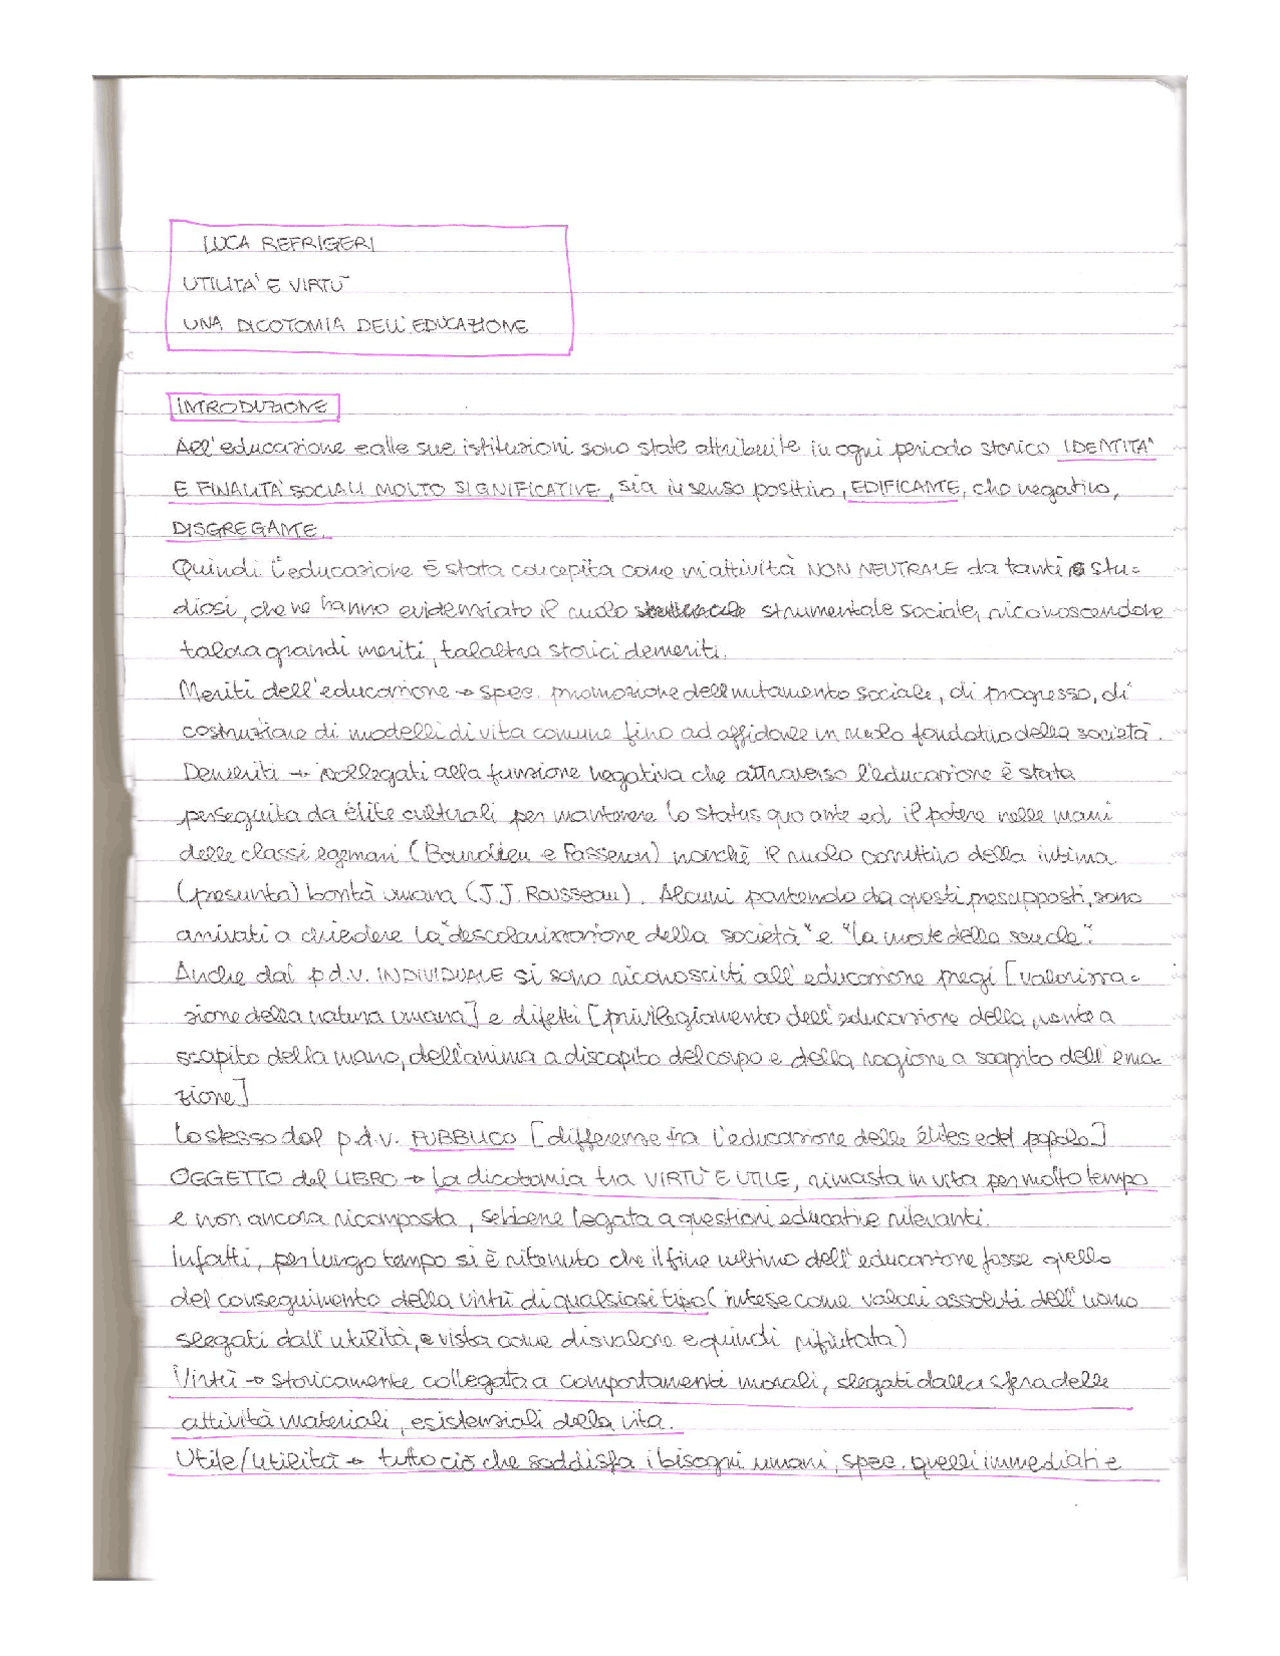 LUCA REFRIGERI
UTILITA' E VIRTU'
UNA DICOTOMIA DELL'EDUCAZIONE
INTRODUZIONE
All'educazione e alle sue istituzioni sono state attribuite in ogni periodo storico IDENTITA'
E FINALITA' SOCIALI MOLTO SIGNIFICATIVE, sia in senso positivo, EDIFICANTE, che negativo,
DISGREGANTE.
Quindi l'educazione è stata concepita come un'attività NON NEUTRALE da tanti stu=
diosi, che ne hanno evidenziato il ruolo strumentale sociale, riconoscendole
talora grandi meriti, talaltra storici demeriti.
Meriti dell'educazione → spec. promozione del mutamento sociale, di progresso, di
costruzione di modelli di vita comune fino ad affidarle un ruolo fondativo della società.
Demeriti → collegati alla funzione negativa che attraverso l'educazione è stata
perseguita da élite culturali per mantenere lo status quo ante ed il potere nelle mani
delle classi egemoni (Bourdieu e Passeron) nonchè il ruolo corruttivo della intima
(presunta) bontà umana (J.J. Rousseau). Alcuni partendo da questi presupposti, sono
arrivati a chiedere la "descolarizzazione della società" e "la morte della scuola".
Anche dal p.d.v. INDIVIDUALE si sono riconosciuti all'educazione pregi [valorizza=
zione della natura umana] e difetti [privilegiamento dell'educazione della mente a
scapito della mano, dell'anima a discapito del corpo e della ragione a scapito dell'emo=
zione]
Lo stesso dal p.d.v. PUBBLICO [differenze fra l'educazione delle élites e del popolo]
OGGETTO del LIBRO → la dicotomia tra VIRTU' E UTILE, rimasta in vita per molto tempo
e non ancora ricomposta, sebbene legata a questioni educative rilevanti.
Infatti, per lungo tempo si è ritenuto che il fine ultimo dell'educazione fosse quello
del conseguimento della virtù di qualsiasi tipo (intese come valori assoluti dell'uomo
slegati dall'utilità, vista come disvalore e quindi rifiutata)
Virtù → storicamente collegata a comportamenti morali, slegati dalla sfera delle
attività materiali, esistenziali della vita.
Utile/utilità → tutto ciò che soddisfa i bisogni umani, spec. quelli immediati e